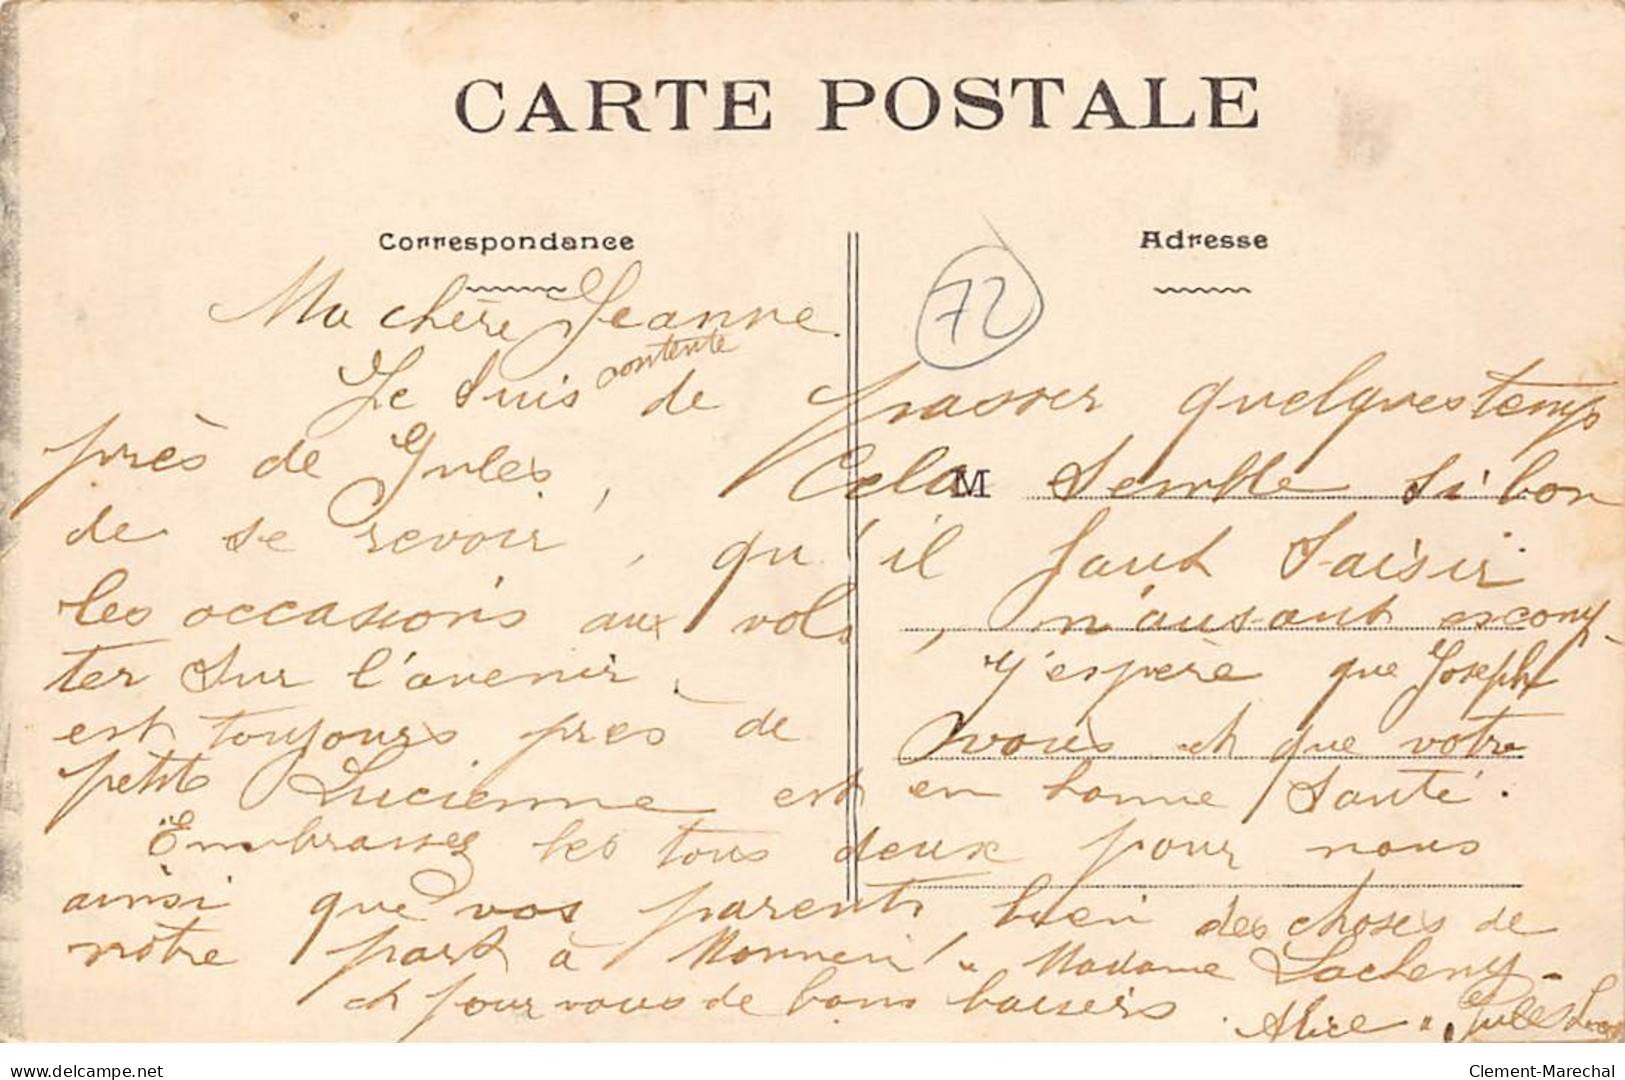 CARTE POSTALE
Correspondance
Adresse
72
Ma chère Jeanne
Je suis contente de passer quelques temps
près de Jules, Cela semble si bon
M
de se revoir, qu'il faut saisir
les occasions aux vols, n'ausant escomp-
ter sur l'avenir. J'espère que Joseph
est toujours près de vous et que votre
petite Lucienne est en bonne santé.
Embrassez les tous deux pour nous
ainsi que vos parents bien des choses de
notre part à Monsieur " Madame
et pour vous de bons baisers. Alice " Jules
delcampe.net
Clement-Marechal